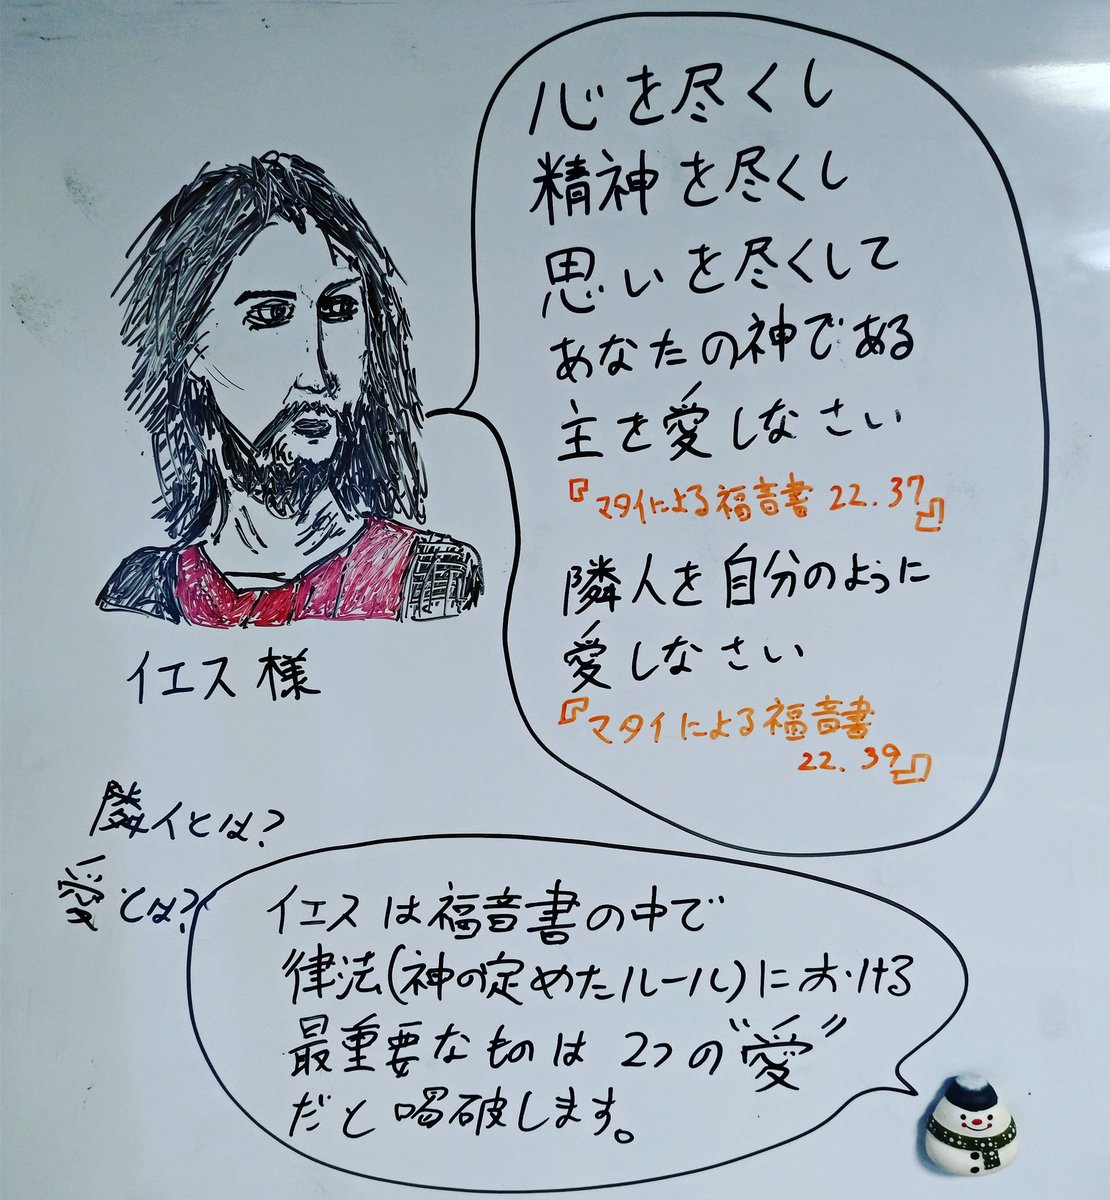 心を尽くし
精神を尽くし
思いを尽くして
あなたの神である
主を愛しなさい
『マタイによる福音書 22.37』
隣人を自分のように
愛しなさい
『マタイによる福音書
22.39』
イエス様
隣人とは?
愛とは?
イエスは福音書の中で
律法(神の定めたルール)における
最重要なものは 2つの“愛”
だと喝破します。